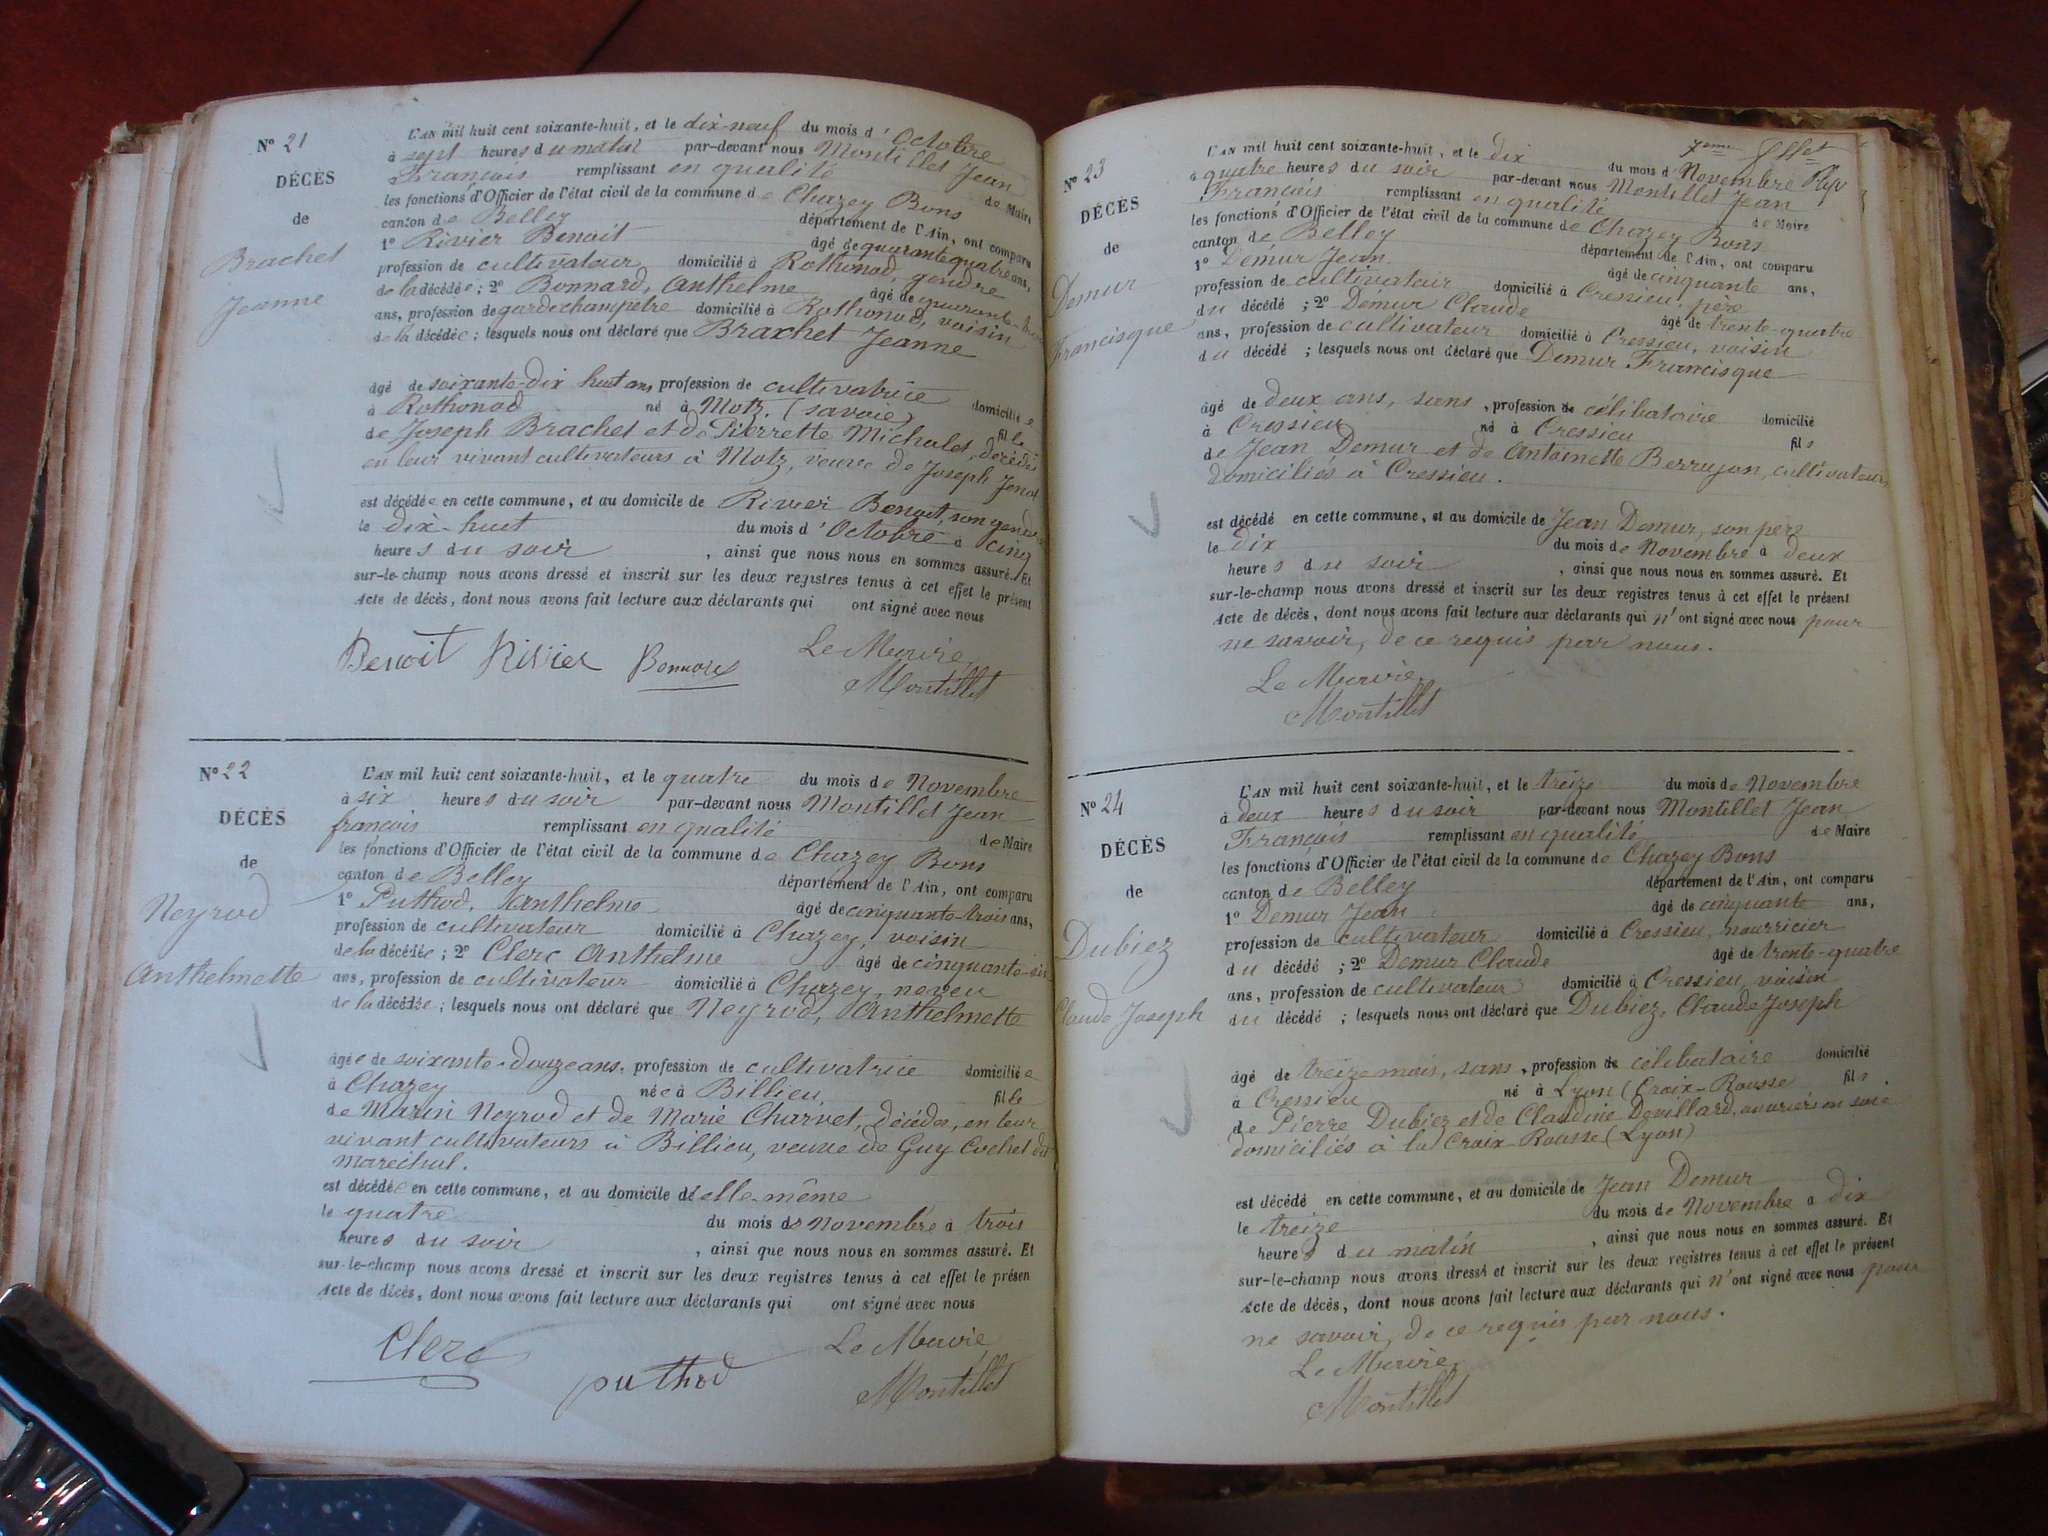 N° 21
DÉCÈS
de
Brachet
Jeanne
L'AN mil huit cent soixante-huit, et le dix-neuf du mois d'Octobre
à sept heures du matin par-devant nous Montillet Jean
François remplissant en qualité de Maire
les fonctions d'Officier de l'état civil de la commune de Chazey Bons
canton de Belley département de l'Ain, ont comparu
1° Rivier Benoit âgé de quarante quatre ans,
profession de cultivateur domicilié à Rothonod, gendre
de la décédée ; 2° Bonnard, Anthelme âgé de quarante
ans, profession de garde champêtre domicilié à Rothonod, voisin
de la décédée ; lesquels nous ont déclaré que Brachet Jeanne
âgé de soixante-dix huit ans, profession de cultivatrice domiciliée
à Rothonod né à Motz, (Savoie) fille
de Joseph Brachet et de Pierrette Michulet, décédés
en leur vivant cultivateurs à Motz, veuve de Joseph
est décédée en cette commune, et au domicile de Rivier Benoit, son gendre
le dix-huit du mois d'Octobre à cinq
heures du soir , ainsi que nous nous en sommes assuré. Et
sur-le-champ nous avons dressé et inscrit sur les deux registres tenus à cet effet le présent
Acte de décès, dont nous avons fait lecture aux déclarants qui ont signé avec nous
Benoit Rivier Bonnard Le Maire,
Montillet
N° 22
DÉCÈS
de
Neyrod
Anthelmette
L'AN mil huit cent soixante-huit, et le quatre du mois de Novembre
à six heures du soir par-devant nous Montillet Jean
françois remplissant en qualité de Maire
les fonctions d'Officier de l'état civil de la commune de Chazey Bons
canton de Belley département de l'Ain, ont comparu
1° Puthod, Anthelme âgé de cinquante-trois ans,
profession de cultivateur domicilié à Chazey, voisin
de la décédée ; 2° Clerc Anthelme âgé de cinquante-six
ans, profession de cultivateur domicilié à Chazey, neveu
de la décédée ; lesquels nous ont déclaré que Neyrod, Anthelmette
âgée de soixante-douze ans, profession de cultivatrice domiciliée
à Chazey née à Billieu, fille
de Marin Neyrod et de Marie Charvet, décédés, en leur
vivant cultivateurs à Billieu, veuve de Guy Cochet dit
maréchal.
est décédée en cette commune, et au domicile d'elle-même
le quatre du mois de Novembre à trois
heures du soir , ainsi que nous nous en sommes assuré. Et
sur-le-champ nous avons dressé et inscrit sur les deux registres tenus à cet effet le présen
Acte de décès, dont nous avons fait lecture aux déclarants qui ont signé avec nous
Clerc puthod Le Maire
Montillet
N° 23
DÉCÈS
de
Demur
Francisque
7eme
L'AN mil huit cent soixante-huit, et le dix du mois d Novembre
à quatre heures du soir par-devant nous Montillet Jean
François remplissant en qualité de Maire
les fonctions d'Officier de l'état civil de la commune de Chazey Bons
canton de Belley département de l'Ain, ont comparu
1° Demur Jean âgé de cinquante ans,
profession de cultivateur domicilié à Cressieu, père
du décédé ; 2° Demur Claude âgé de trente-quatre
ans, profession de cultivateur domicilié à Cressieu, voisin
du décédé ; lesquels nous ont déclaré que Demur Francisque
âgé de deux ans, sans , profession de célibataire domicilié
à Cressieu né à Cressieu fils
de Jean Demur et de Antoinette Berrujon, cultivateurs
domiciliés à Cressieu.
est décédé en cette commune, et au domicile de Jean Demur, son père
le dix du mois de Novembre à deux
heures du soir , ainsi que nous nous en sommes assuré. Et
sur-le-champ nous avons dressé et inscrit sur les deux registres tenus à cet effet le présent
Acte de décès, dont nous avons fait lecture aux déclarants qui n'ont signé avec nous pour
ne savoir, de ce requis par nous.
Le Maire,
Montillet
N° 24
DÉCÈS
de
Dubiez
Claude Joseph
L'AN mil huit cent soixante-huit, et le treize du mois de Novembre
à deux heures du soir par-devant nous Montillet Jean
François remplissant en qualité de Maire
les fonctions d'Officier de l'état civil de la commune de Chazey Bons
canton de Belley département de l'Ain, ont comparu
1° Demur Jean âgé de cinquante ans,
profession de cultivateur domicilié à Cressieu, nourricier
du décédé ; 2° Demur Claude âgé de trente-quatre
ans, profession de cultivateur domicilié à Cressieu, voisin
du décédé ; lesquels nous ont déclaré que Dubiez, Claude Joseph
âgé de treize mois, sans , profession de célibataire domicilié
à Cressieu né à Lyon (Croix-Rousse fils
de Pierre Dubiez et de Claudine Devillard, ouvriers en soie
domiciliés à la Croix-Rousse (Lyon)
est décédé en cette commune, et au domicile de Jean Demur
le treize du mois de Novembre à dix
heures du matin , ainsi que nous nous en sommes assuré. Et
sur-le-champ nous avons dressé et inscrit sur les deux registres tenus à cet effet le présent
Acte de décès, dont nous avons fait lecture aux déclarants qui n'ont signé avec nous pour
ne savoir, de ce requis par nous.
Le Maire,
Montillet